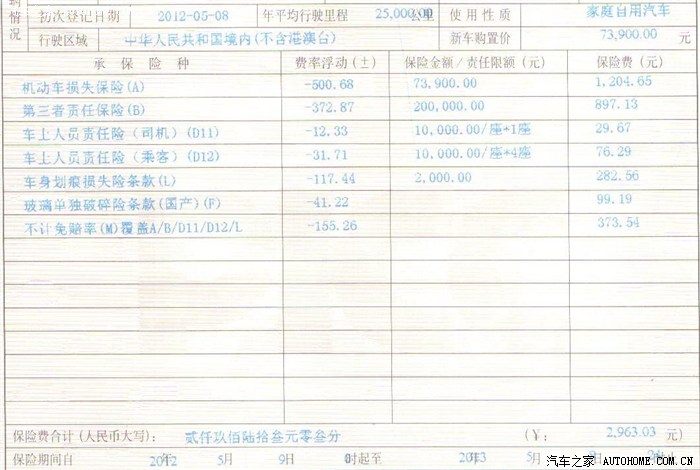 辆情况
初次登记日期 2012-05-08 年平均行驶里程 25,000.00 公里 使用性质 家庭自用汽车
行驶区域 中华人民共和国境内(不含港澳台) 新车购置价 73,900.00 元
承保险种 费率浮动(±) 保险金额/责任限额(元) 保险费(元)
机动车损失保险(A) -500.68 73,900.00 1,204.65
第三者责任保险(B) -372.87 200,000.00 897.13
车上人员责任险(司机)(D11) -12.33 10,000.00/座*1座 29.67
车上人员责任险(乘客)(D12) -31.71 10,000.00/座*4座 76.29
车身划痕损失险条款(L) -117.44 2,000.00 282.56
玻璃单独破碎险条款(国产)(F) -41.22 99.19
不计免赔率(M)覆盖A/B/D11/D12/L -155.26 373.54
保险费合计(人民币大写): 贰仟玖佰陆拾叁元零叁分 (¥: 2,963.03 元)
保险期间自 2012 年 5 月 9 日 0 时起至 2013 年 5 月
汽车之家 AUTOHOME.COM.CN